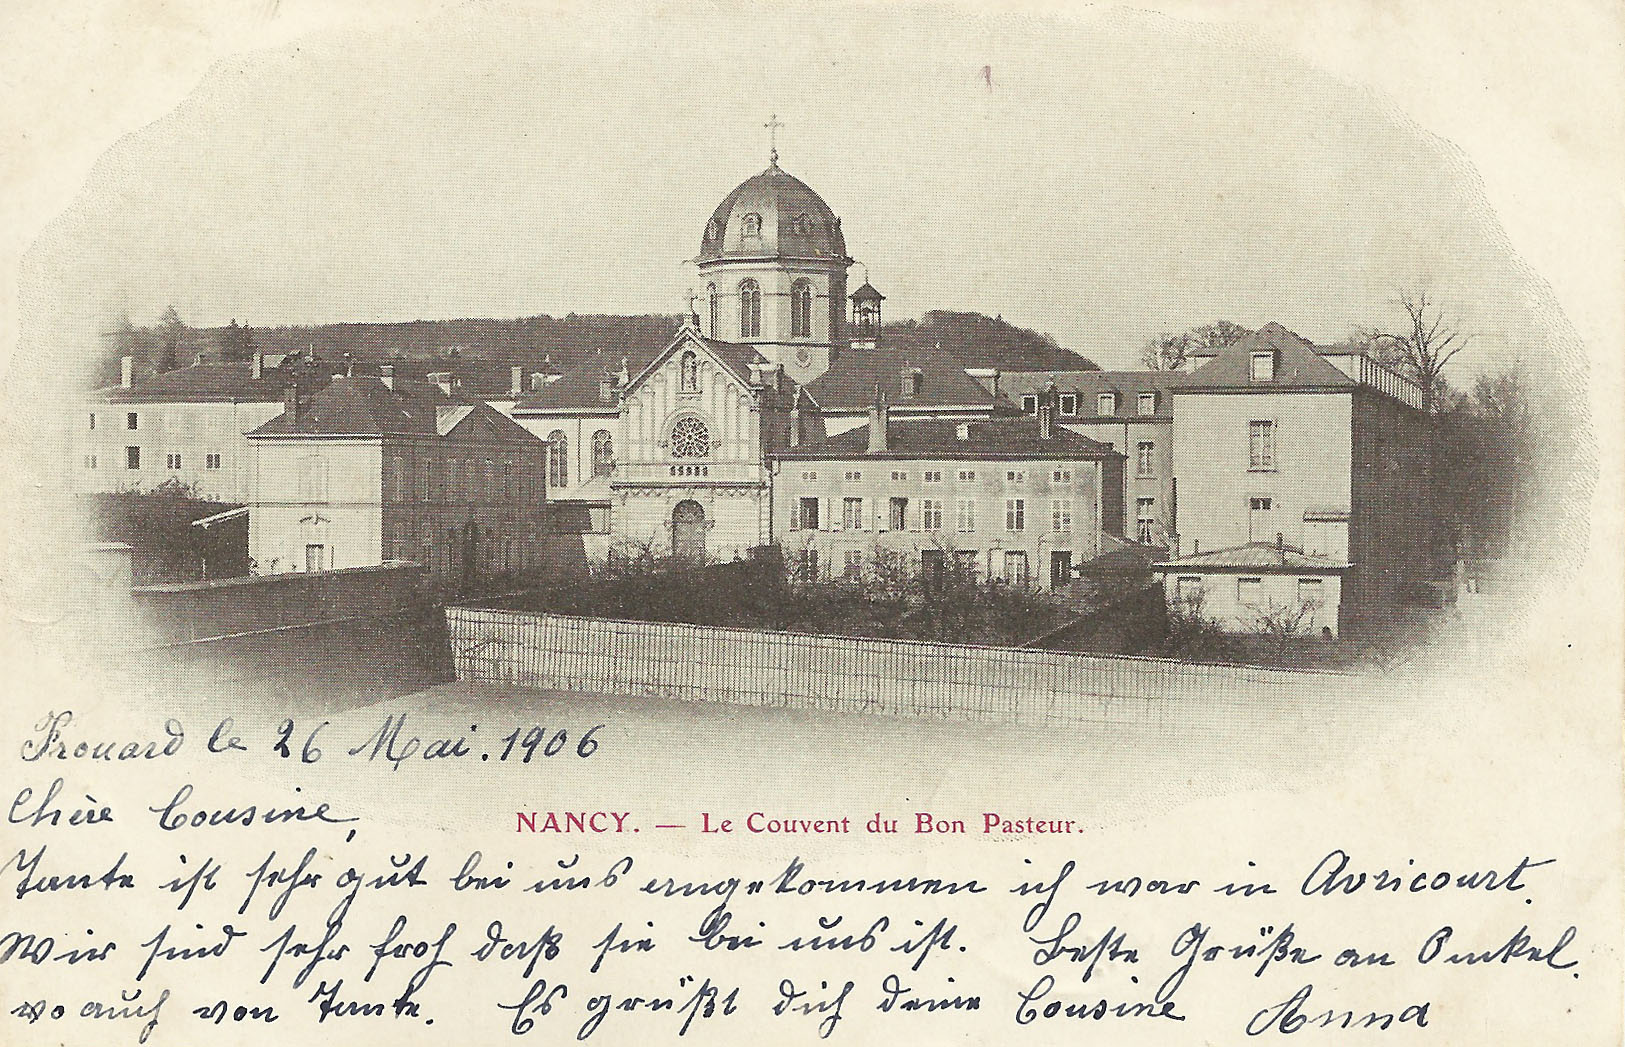 Frouard le 26 Mai. 1906
Chère Cousine,
NANCY. — Le Couvent du Bon Pasteur.
Tante ist sehr gut bei uns angekommen ich war in Avricourt.
Wir sind sehr froh daß sie bei uns ist. Beste Grüße an Onkel.
wo auch von Tante. Es grüßt dich deine Cousine Anna